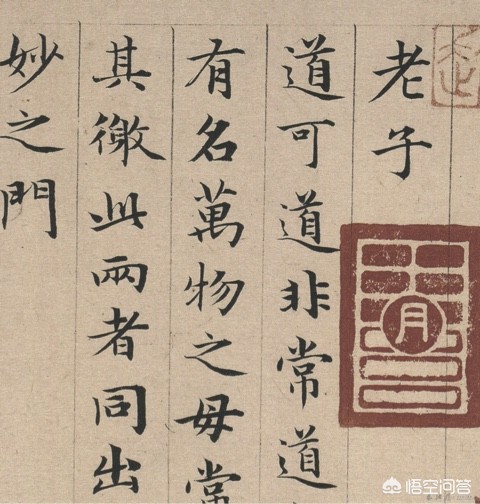 老子
道可道非常道
有名萬物之毋常
其徼此兩者同出
妙之門
月
悟空问答